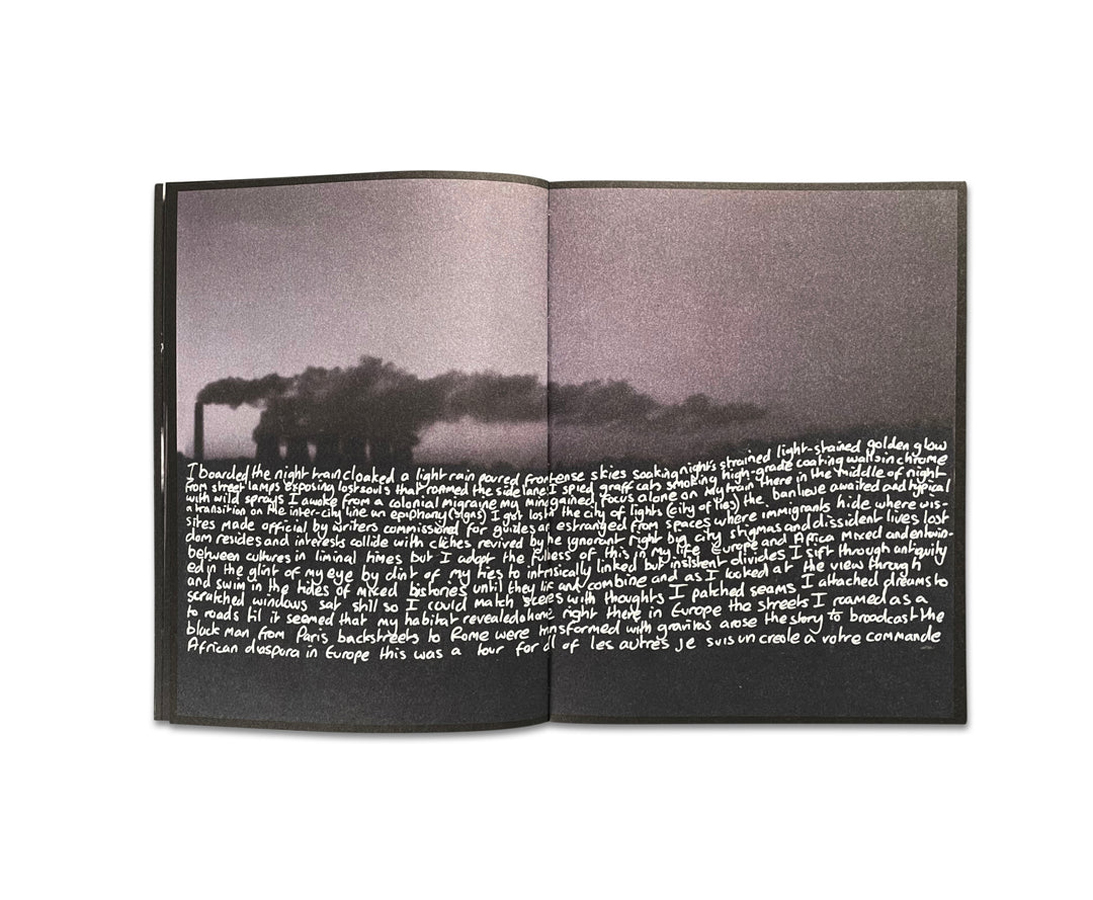 I boarded the night train cloaked a light rain poured from tense skies soaking night's strained light-stained golden glow
from street lamps exposing lost souls that roamed the side lane I spied graff cats smoking high-grade coating walls in chrome
with wild sprays I awoke from a colonial migraine my mind gained focus alone on my train there in the middle of night
a transition on the inter-city line an epiphany (signs) I got lost in the city of lights (city of lies) the banlieue awaited and typical
sites made official by writers commissioned for guides are estranged from spaces where immigrants hide where wis-
dom resides and interests collide with clichés revived by the ignorant right big city stigmas and dissident lives lost
between cultures in liminal times but I adopt the fullness of this in my life Europe and Africa mixed and entwin-
ed in the glint of my eye by dint of my ties to intrinsically linked but insistent divides I sift through antiquity
and swim in the tides of mixed histories until they lift and combine and as I looked at the view through
scratched windows sat still so I could match scenes with thoughts I patched seams I attached dreams to
to roads til it seemed that my habitat revealed home right there in Europe the streets I roamed as a
black man from Paris backstreets to Rome were transformed with gravitas arose the story to broadcast the
African diaspora in Europe this was a tour for all of les autres je suis un creole à votre commande